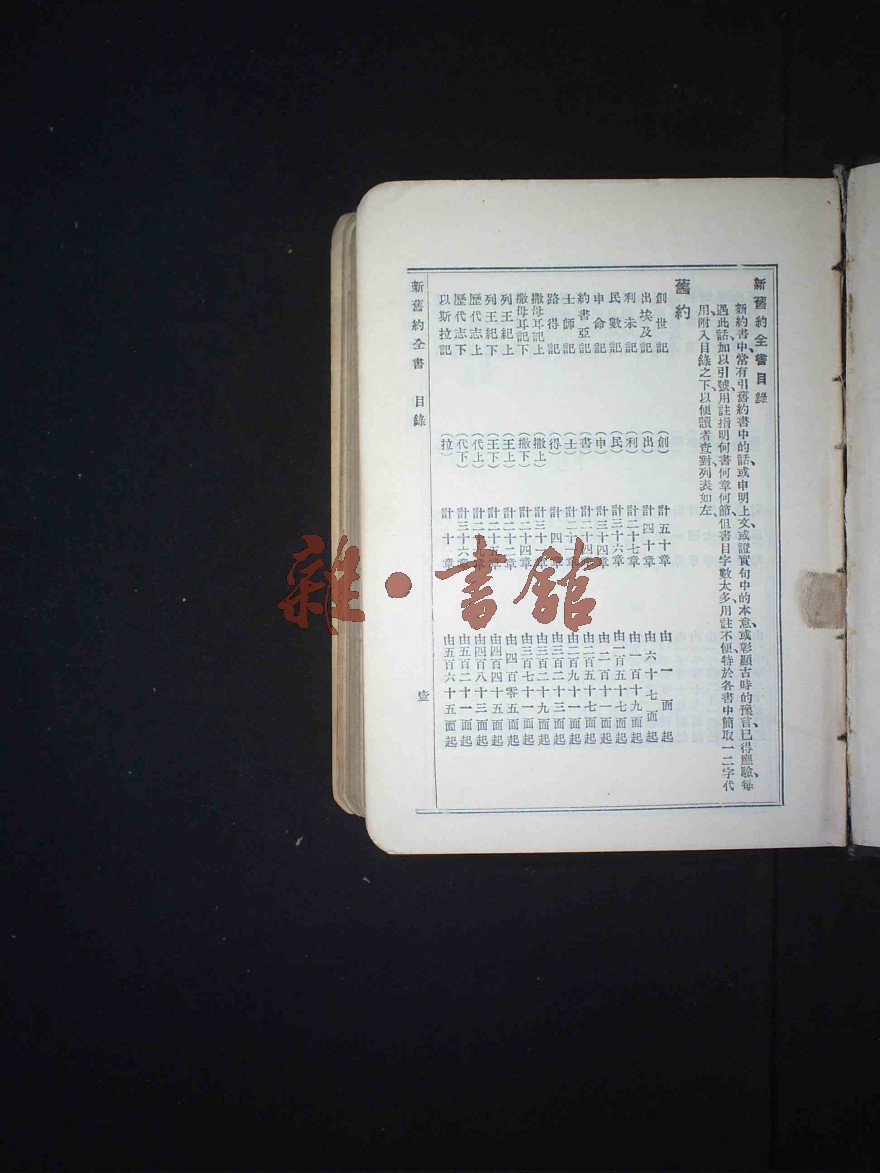 新舊約全書目錄
新約書中、常有引舊約書中的話、或申明上文、或證實句中的本意、或彰顯古時的豫言已得應驗、每
遇此話、加以引號、用註指明何書何章何節、但書目字數太多、用註不便、特於各書中簡取一二字代
用、附入目錄之下、以便讀者查對、列表如左、
舊約
創世記 (創) 計五十章 由一面起
出埃及記 (出) 計四十章 由六十七面起
利未記 (利) 計二十七章 由一百十九面起
民數記 (民) 計三十六章 由一百五十七面起
申命記 (申) 計三十四章 由二百十一面起
約書亞記 (書) 計二十四章 由二百五十七面起
士師記 (士) 計二十一章 由二百九十一面起
路得記 (得) 計四章 由三百二十三面起
撒母耳記上 (撒上) 計三十一章 由三百二十九面起
撒母耳記下 (撒下) 計二十四章 由三百七十一面起
列王紀上 (王上) 計二十二章 由四百零五面起
列王紀下 (王下) 計二十五章 由四百四十五面起
歷代志上 (代上) 計二十九章 由四百八十三面起
歷代志下 (代下) 計三十六章 由五百二十一面起
以斯拉記 (拉) 計十章 由五百六十五面起
新舊約全書 目錄 壹
雜·書館